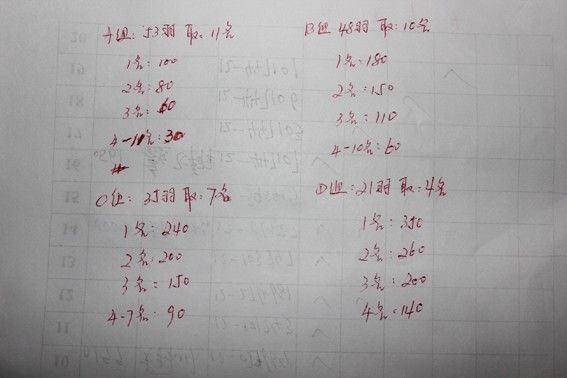 A组: 53羽 取: 11名
1名: 100
2名: 80
3名: 60
4-11名: 30
B组 48羽 取: 10名
1名: 180
2名: 150
3名: 110
4-10名: 60
C组: 35羽 取: 7名
1名: 240
2名: 200
3名: 150
4-7名: 90
D组: 21羽 取: 4名
1名: 350
2名: 260
3名: 200
4名: 140